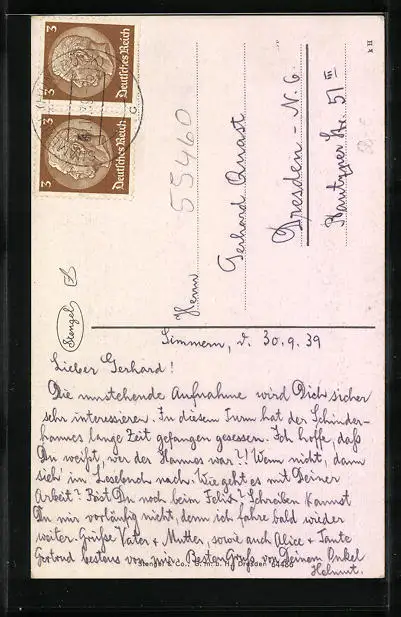 3
Deutsches Reich
3
Deutsches Reich
55460
Herrn
Gerhard Quast
Dresden - N. 6
Bautzner Str. 51 III
Stengel
Simmern, d. 30.9.39
Lieber Gerhard!
Die umstehende Aufnahme wird Dich sicher
sehr interessieren. In diesem Turm hat der Schinder-
hannes lange Zeit gefangen gesessen. Ich hoffe, daß
Du weißt, wer der Hannes war?! Wenn nicht, dann
sieh' im Lesebuch nach. Wie geht es mit Deiner
Arbeit? Bist Du noch beim Felix? Schreiben kannst
Du mir vorläufig nicht, denn ich fahre bald wieder
weiter. Grüße Vater + Mutter, sowie auch Alice + Tante
Gertrud bestens von mir. Besten Gruß von Deinem Onkel
Helmut.
Stengel & Co., G. m. b. H., Dresden 64486